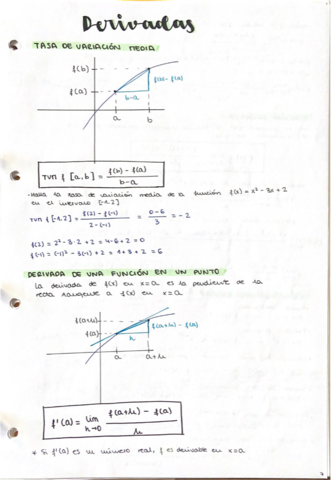 Derivadas
TASA DE VARIACIÓN MEDIA
f(b)
f(b)-f(a)
f(a)
b-a
a b
TVM f [a,b] = f(b) - f(a) / b-a
-Halla la tasa de variación media de la función f(x) = x² - 3x + 2
en el intervalo [-1,2]
TVM f [-1,2] = f(2) - f(-1) / 2-(-1) = 0-6 / 3 = -2
f(2) = 2² - 3·2 + 2 = 4-6+2 = 0
f(-1) = (-1)² - 3(-1) + 2 = 1+3+2 = 6
DERIVADA DE UNA FUNCIÓN EN UN PUNTO
La derivada de f(x) en x=a es la pendiente de la
recta tangente a f(x) en x=a
f(a+h)
f(a+h) - f(a)
f(a)
h
a a+h
f'(a) = lim h→0 f(a+h) - f(a) / h
* Si f'(a) es un número real, f es derivable en x=a